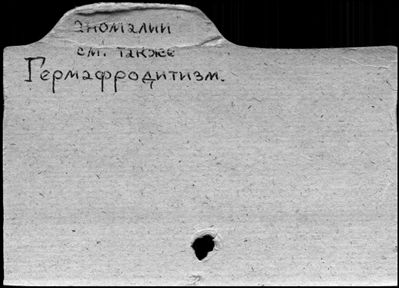 Аномалии
см. также
Гермафродитизм.